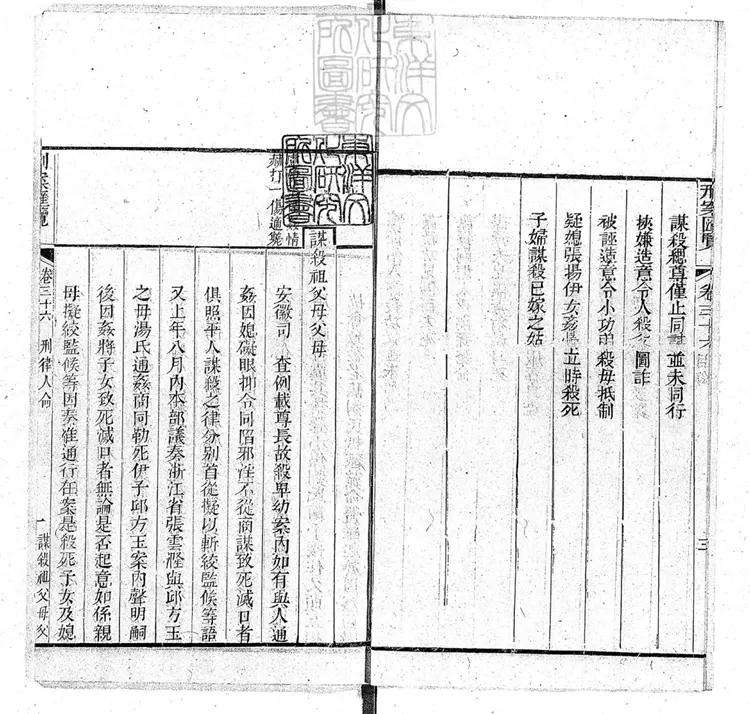 東洋文
化研究
所圖書
刑案匯覽
卷三十六目錄
謀殺緦尊僅止同謀並未同行
挾嫌造意令人殺父圖詐
被誣造意令小功弟殺母抵制
疑媳張揚伊女姦情立時殺死
子婦謀殺已嫁之姑
三
東洋文
化研究
所圖書
謀殺祖父母父母
安徽司 查例載尊長故殺卑幼案內如有與人通
姦因媳礙眼抑令同陷邪淫不從商謀致死滅口者
俱照平人謀殺之律分別首從擬以斬絞監候等語
又上年八月內本部議奏浙江省張雲隆與邱方玉
之母湯氏通姦商同勒死伊子邱方玉案內聲明嗣
後因姦將子女致死滅口者無論是否起意如係親
母擬絞監候等因奏准通行在案是殺死子女及媳
刑案匯覽
卷三十六 刑律人命
一 謀殺祖父母父